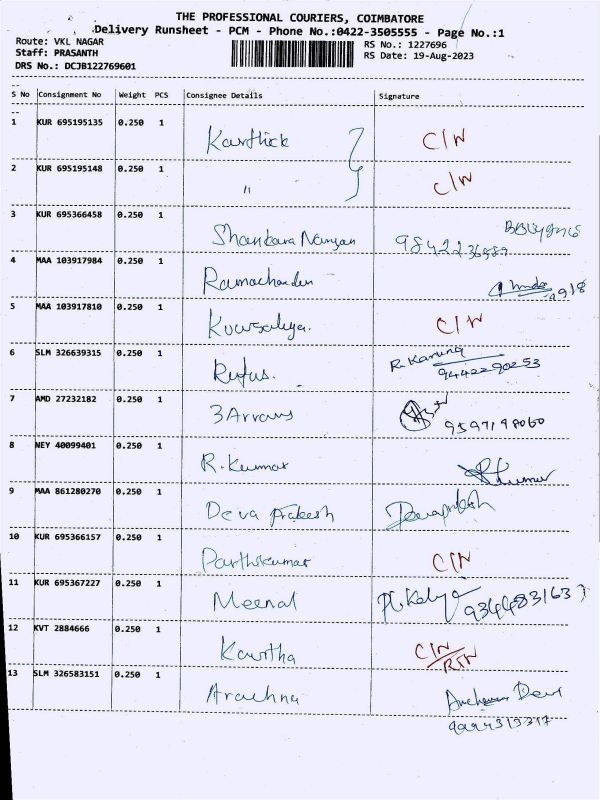 THE PROFESSIONAL COURIERS, COIMBATORE
Delivery Runsheet - PCM - Phone No.:0422-3505555 - Page No.:1
Route: VKL NAGAR
Staff: PRASANTH
DRS No.: DCJB122769601
RS No.: 1227696
RS Date: 19-Aug-2023
S No Consignment No Weight PCS Consignee Details Signature
1 KUR 695195135 0.250 1 Karthick C/N
2 KUR 695195148 0.250 1 " C/N
3 KUR 695366458 0.250 1 Shankara Narayan
4 MAA 103917984 0.250 1 Ramachanden
5 MAA 103917810 0.250 1 Kowsalya. C/N
6 SLM 326639315 0.250 1 Rufus. R. Karuna
9442290253
7 AMD 27232182 0.250 1 3 Arrows 9597198060
8 NEY 40099401 0.250 1 R. Kumar R Kumar
9 MAA 861280270 0.250 1 Deva Prakesh Devaprakash
10 KUR 695366157 0.250 1 Parthikumar C/N
11 KUR 695367227 0.250 1 Meenal
12 KVT 2884666 0.250 1 Kavitha C/N
RTN
13 SLM 326583151 0.250 1 Arachna